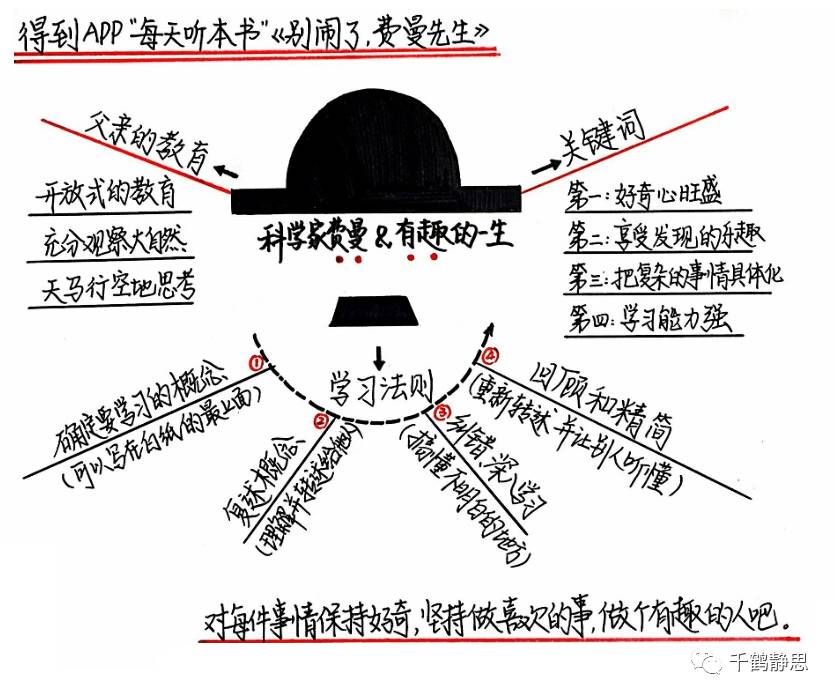 得到APP"每天听本书"《别闹了,费曼先生》
父亲的教育
开放式的教育
充分观察大自然
天马行空地思考
关键词
第一:好奇心旺盛
第二:享受发现的乐趣
第三:把复杂的事情具体化
第四:学习能力强
科学家费曼&有趣的一生
学习法则
①
确定要学习的概念
(可以写在白纸的最上面)
②
复述概念
(理解并转述给他人)
③
纠错,深入学习
(搞懂不明白的地方)
④
回顾和精简
(重新转述并让别人听懂)
对每件事情保持好奇,坚持做喜欢的事,做个有趣的人吧。
千鹤静思